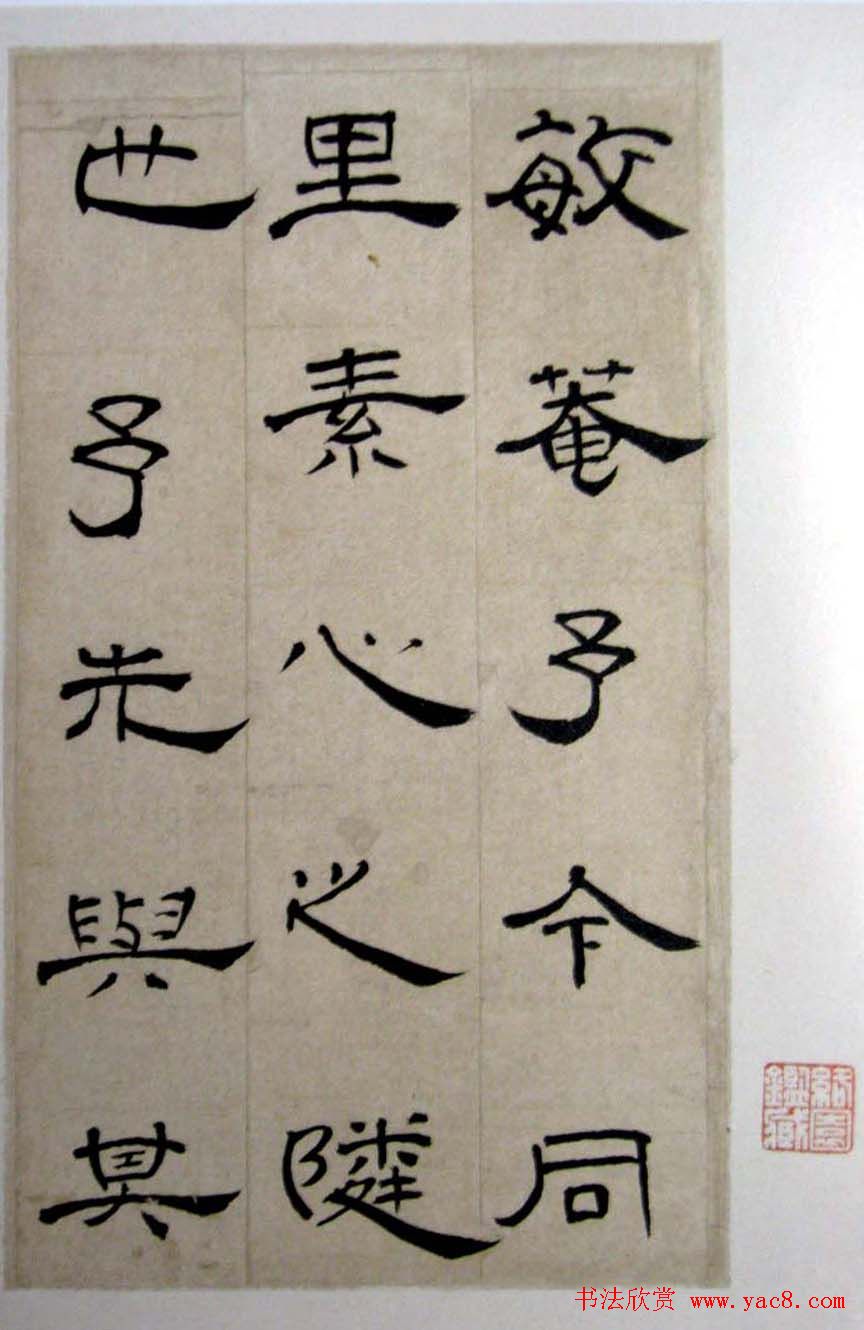 敏菴予今同
里素心之隣
也予先與其
鑑藏
书法欣赏 www.yac8.com